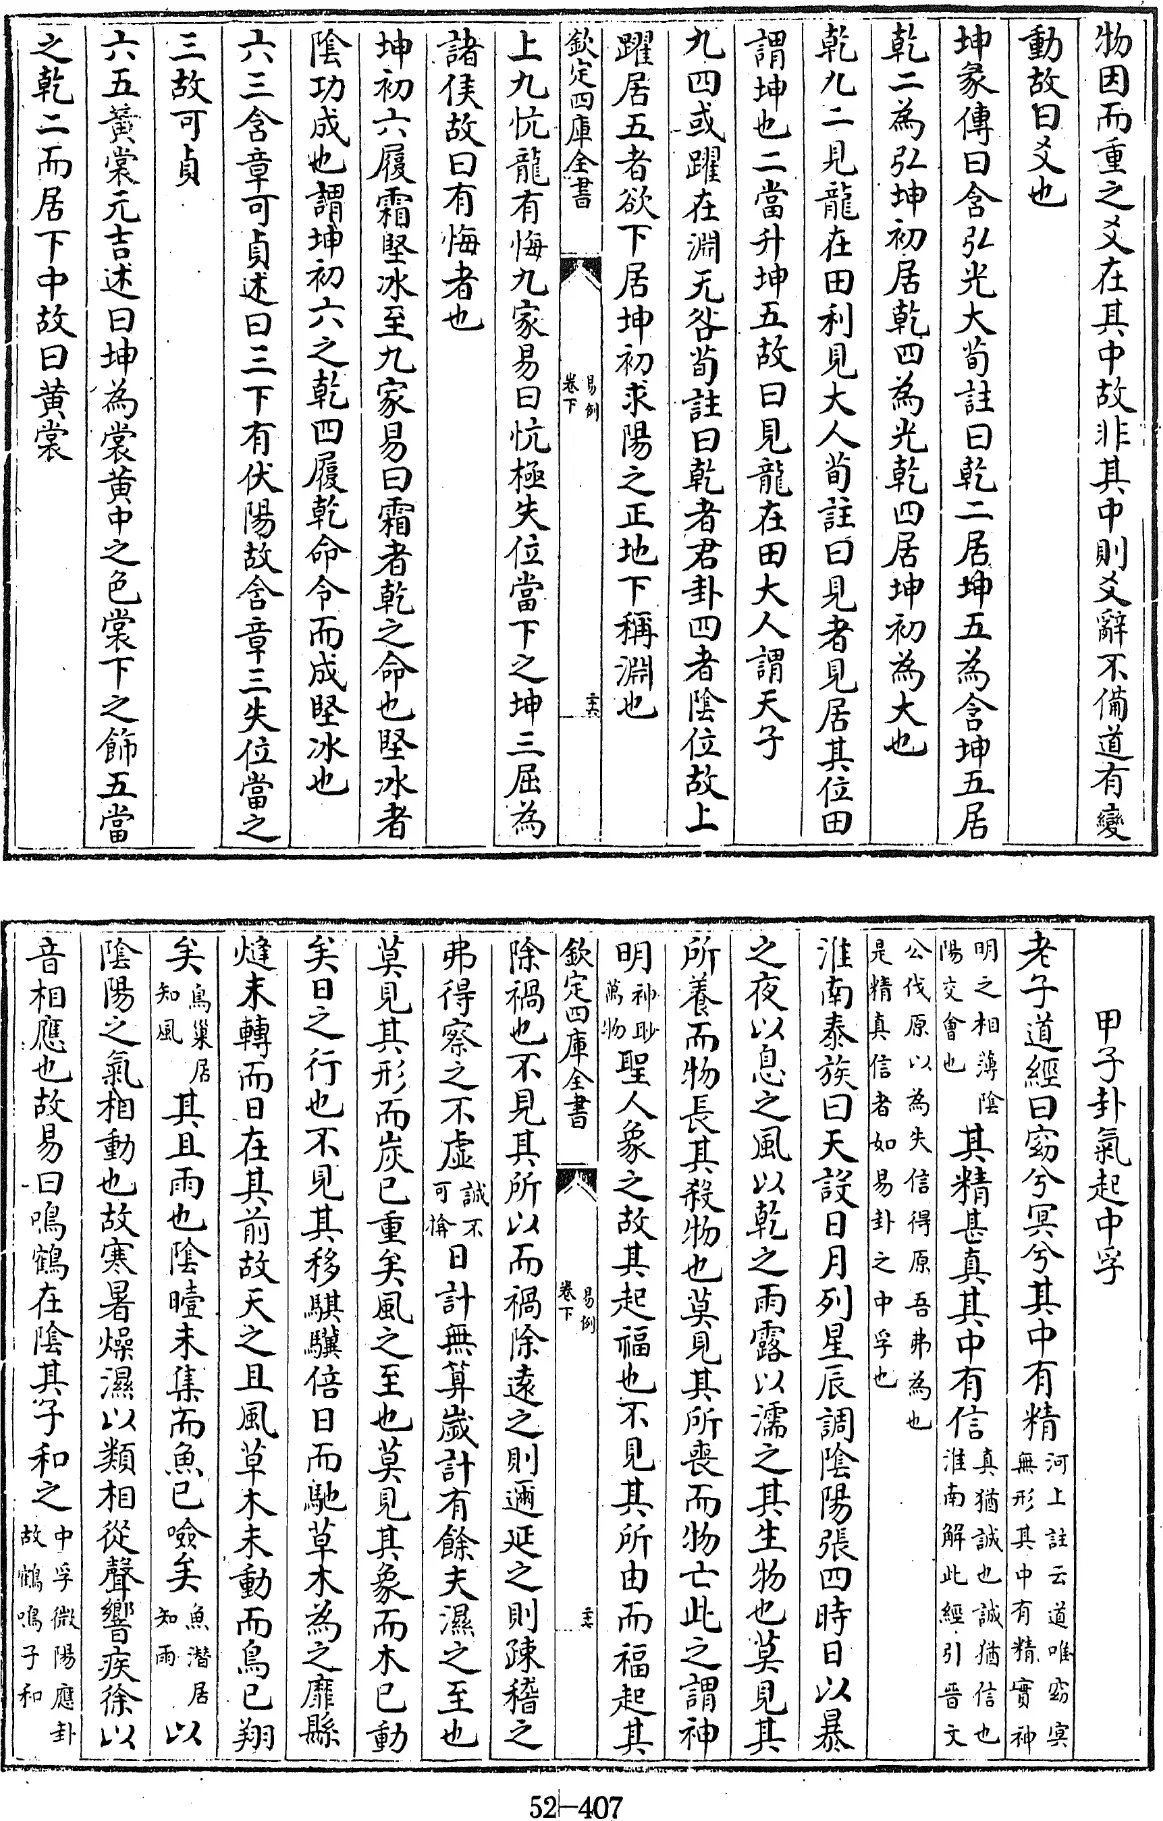 物因而重之爻在其中故非其中則爻辭不備道有變
動故曰爻也
坤彖傳曰含弘光大荀註曰乾二居坤五為含坤五居
乾二為弘坤初居乾四為光乾四居坤初為大也
乾九二見龍在田利見大人荀註曰見者見居其位田
謂坤也二當升坤五故曰見龍在田大人謂天子
九四或躍在淵无咎荀註曰乾者君卦四者陰位故上
躍居五者欲下居坤初求陽之正地下稱淵也
欽定四庫全書
易例
卷下
上九忼龍有悔九家易曰忼極失位當下之坤三屈為
諸侯故曰有悔者也
坤初六履霜堅冰至九家易曰霜者乾之命也堅冰者
陰功成也謂坤初六之乾四履乾命令而成堅冰也
六三含章可貞述曰三下有伏陽故含章三失位當之
三故可貞
六五黃裳元吉述曰坤為裳黃中之色裳下之飾五當
之乾二而居下中故曰黃裳
甲子卦氣起中孚
老子道經曰窈兮冥兮其中有精
河上註云道唯窈冥
無形其中有精實神
明之相薄陰
陽交會也
其精甚真其中有信
真猶誠也誠猶信也
淮南解此經引晉文
公伐原以為失信得原吾弗為也
是精真信者如易卦之中孚也
淮南泰族曰天設日月列星辰調陰陽張四時日以暴
之夜以息之風以乾之雨露以濡之其生物也莫見其
所養而物長其殺物也莫見其所喪而物亡此之謂神
明
神眇
萬物
聖人象之故其起福也不見其所由而福起其
欽定四庫全書
易例
卷下
除禍也不見其所以而禍除遠之則邇延之則疎稽之
弗得察之不虛
誠不
可揜
日計無算歲計有餘夫濕之至也
莫見其形而炭已重矣風之至也莫見其象而木已動
矣日之行也不見其移騏驥倍日而馳草木為之靡縣
熢未轉而日在其前故天之且風草木未動而鳥已翔
矣
鳥巢居
知風
其且雨也陰曀未集而魚已噞矣
魚潛居
知雨
以
陰陽之氣相動也故寒暑燥濕以類相從聲響疾徐以
音相應也故易曰鳴鶴在陰其子和之
中孚微陽應卦
故鶴鳴子和
52-407